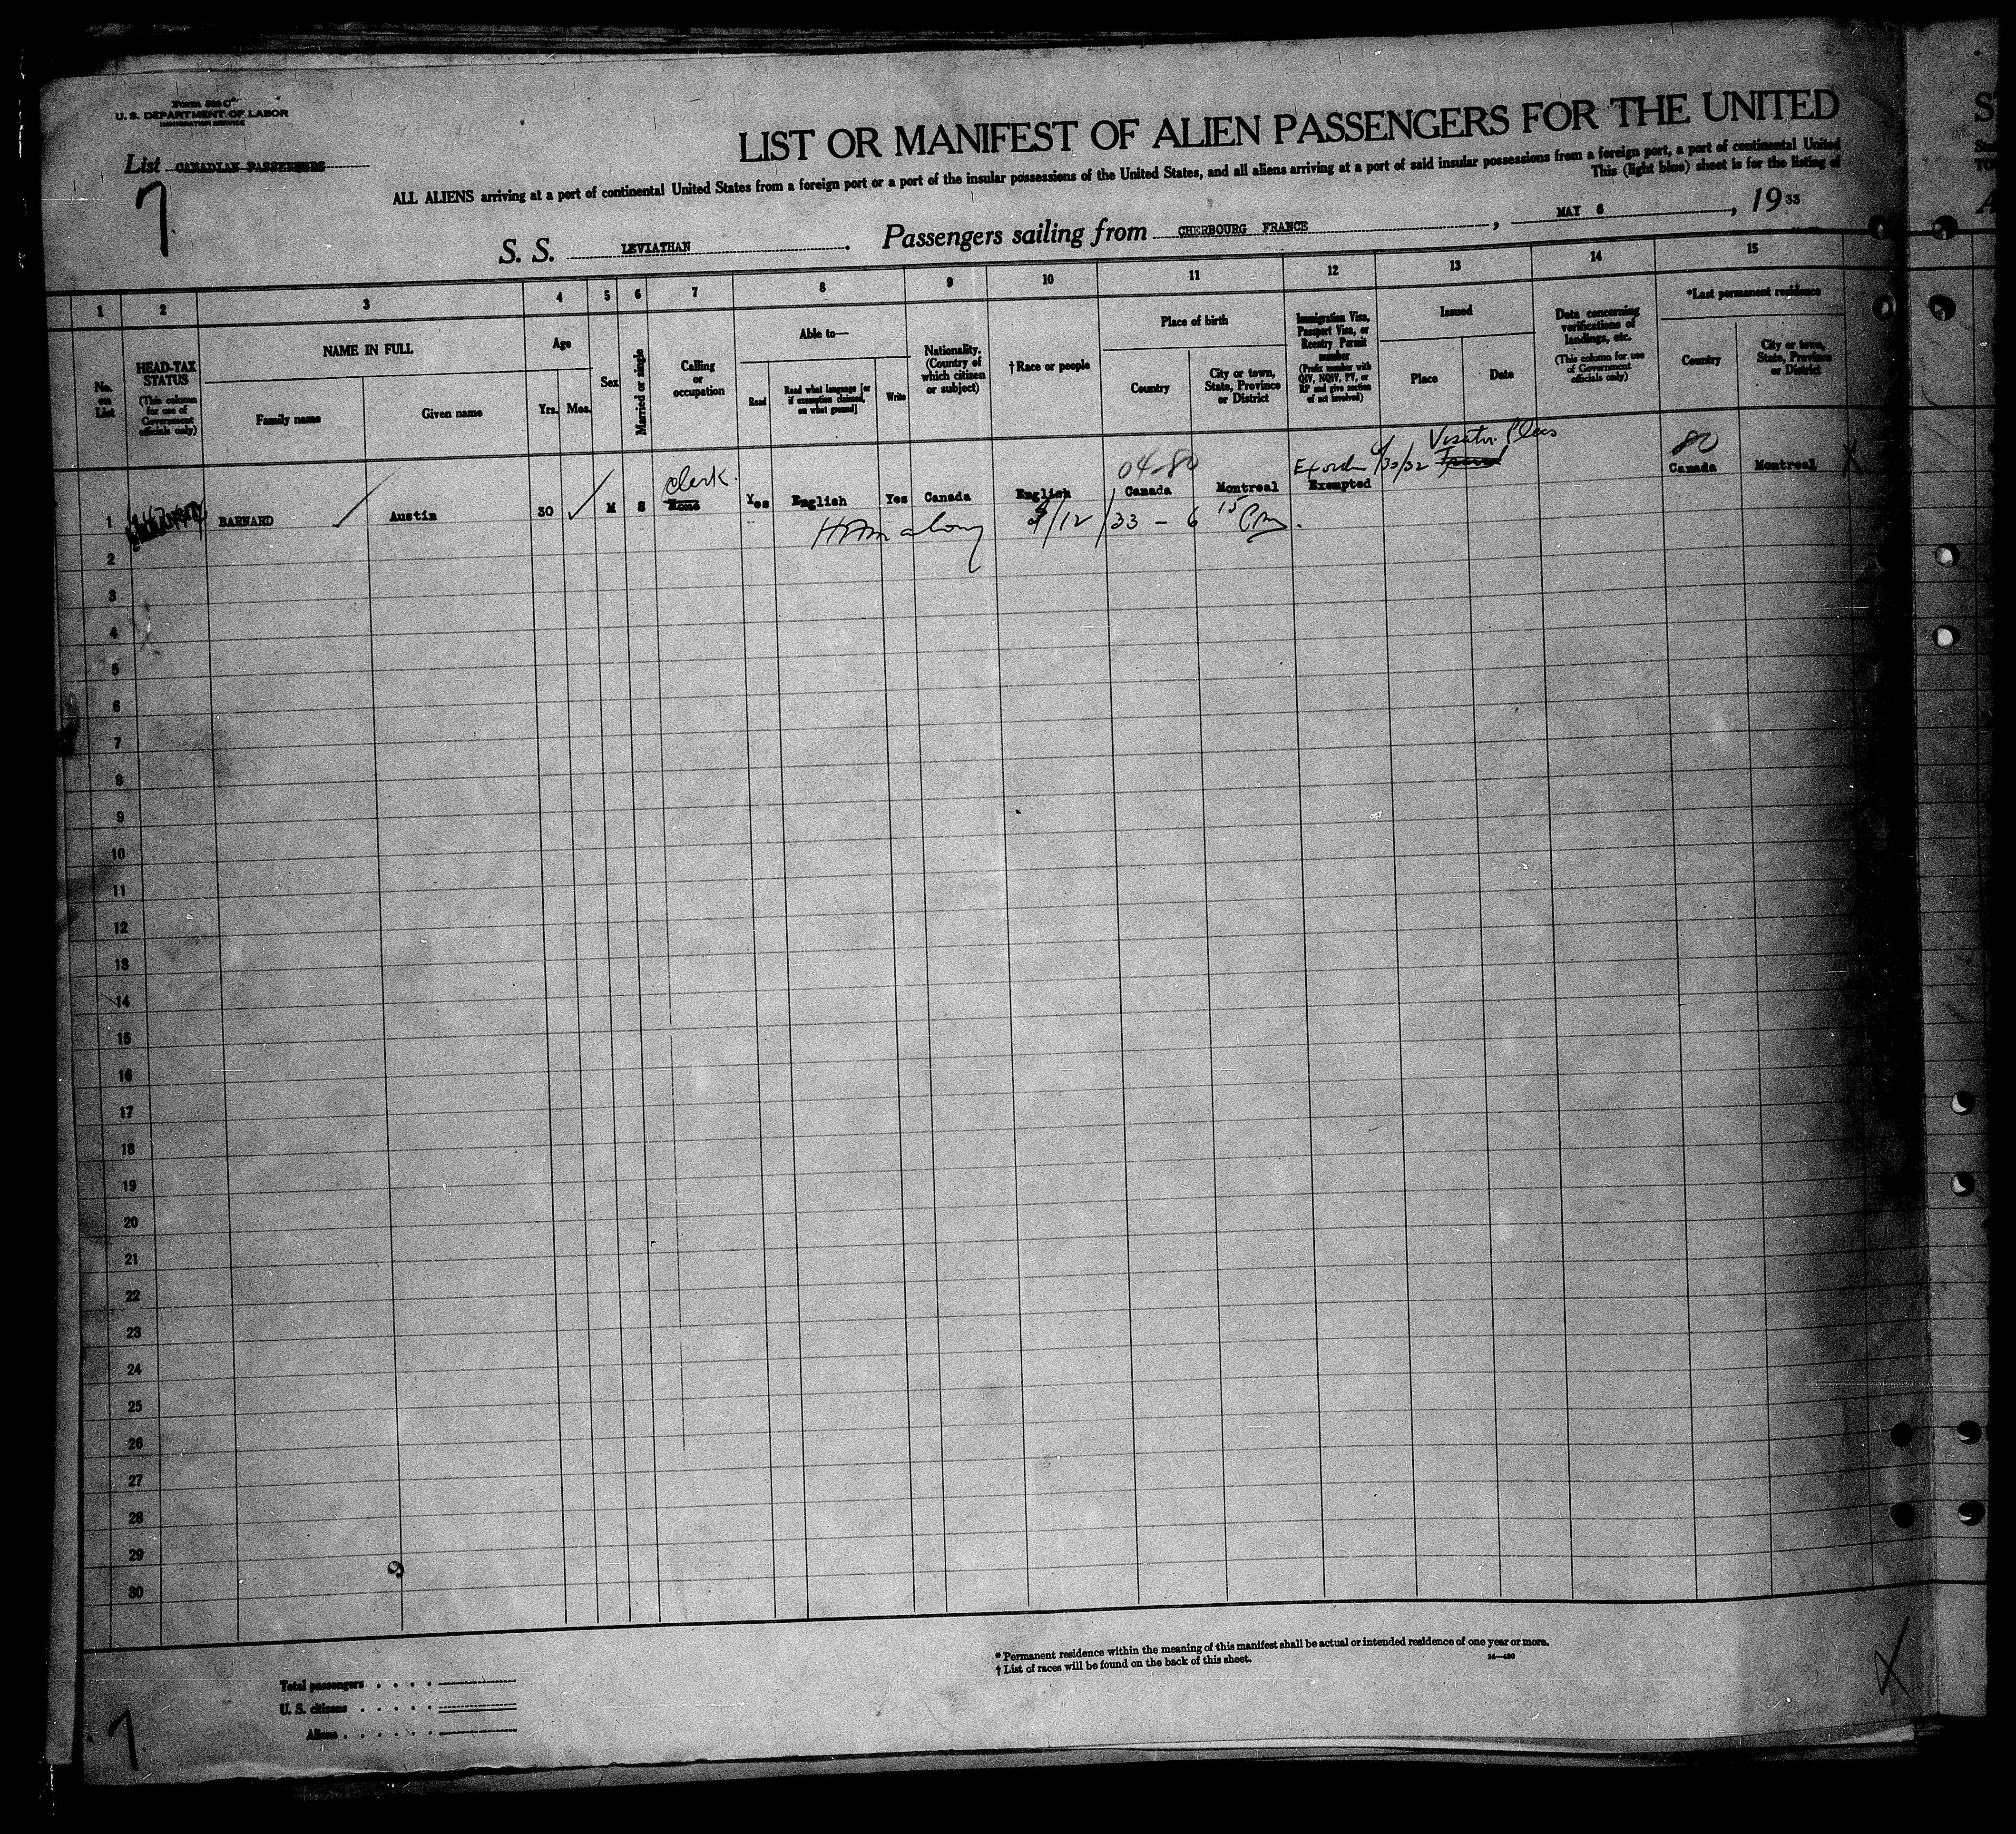 Form 500 C
U. S. DEPARTMENT OF LABOR
IMMIGRATION SERVICE
List CANADIAN PASSENGERS
7
LIST OR MANIFEST OF ALIEN PASSENGERS FOR THE UNITED
ALL ALIENS arriving at a port of continental United States from a foreign port or a port of the insular possessions of the United States, and all aliens arriving at a port of said insular possessions from a foreign port, a port of continental United
This (light blue) sheet is for the listing of
S. S. LEVIATHAN. Passengers sailing from CHERBOURG FRANCE, MAY 6, 19 33
1 2 3 4 5 6 7 8 9 10 11 12 13 14 15
No. on List
HEAD-TAX STATUS (This column for use of Government officials only)
NAME IN FULL
Family name
Given name
Age
Yrs. Mos.
Sex
Married or single
Calling or occupation
Able to—
Read
Read what language [or if exemption claimed, on what ground]
Write
Nationality. (Country of which citizen or subject)
†Race or people
Place of birth
Country
City or town, State, Province or District
Immigration Visa, Passport Visa, or Reentry Permit number (Prefix number with QIV, NQIV, PV, or RP and give section of act involved)
Issued
Place
Date
Data concerning verifications of landings, etc. (This column for use of Government officials only)
*Last permanent residence
Country
City or town, State, Province or District
clerk.
04-80
80
1 BARNARD Austin 30 M S None Yes English Yes Canada English Canada Montreal Exempted Canada Montreal X
/12/33 - 6 15
2
3
4
5
6
7
8
9
10
11
12
13
14
15
16
17
18
19
20
21
22
23
24
25
26
27
28
29
30
* Permanent residence within the meaning of this manifest shall be actual or intended residence of one year or more.
† List of races will be found on the back of this sheet.
14—430
Total passengers
U. S. citizens
Aliens
7
X